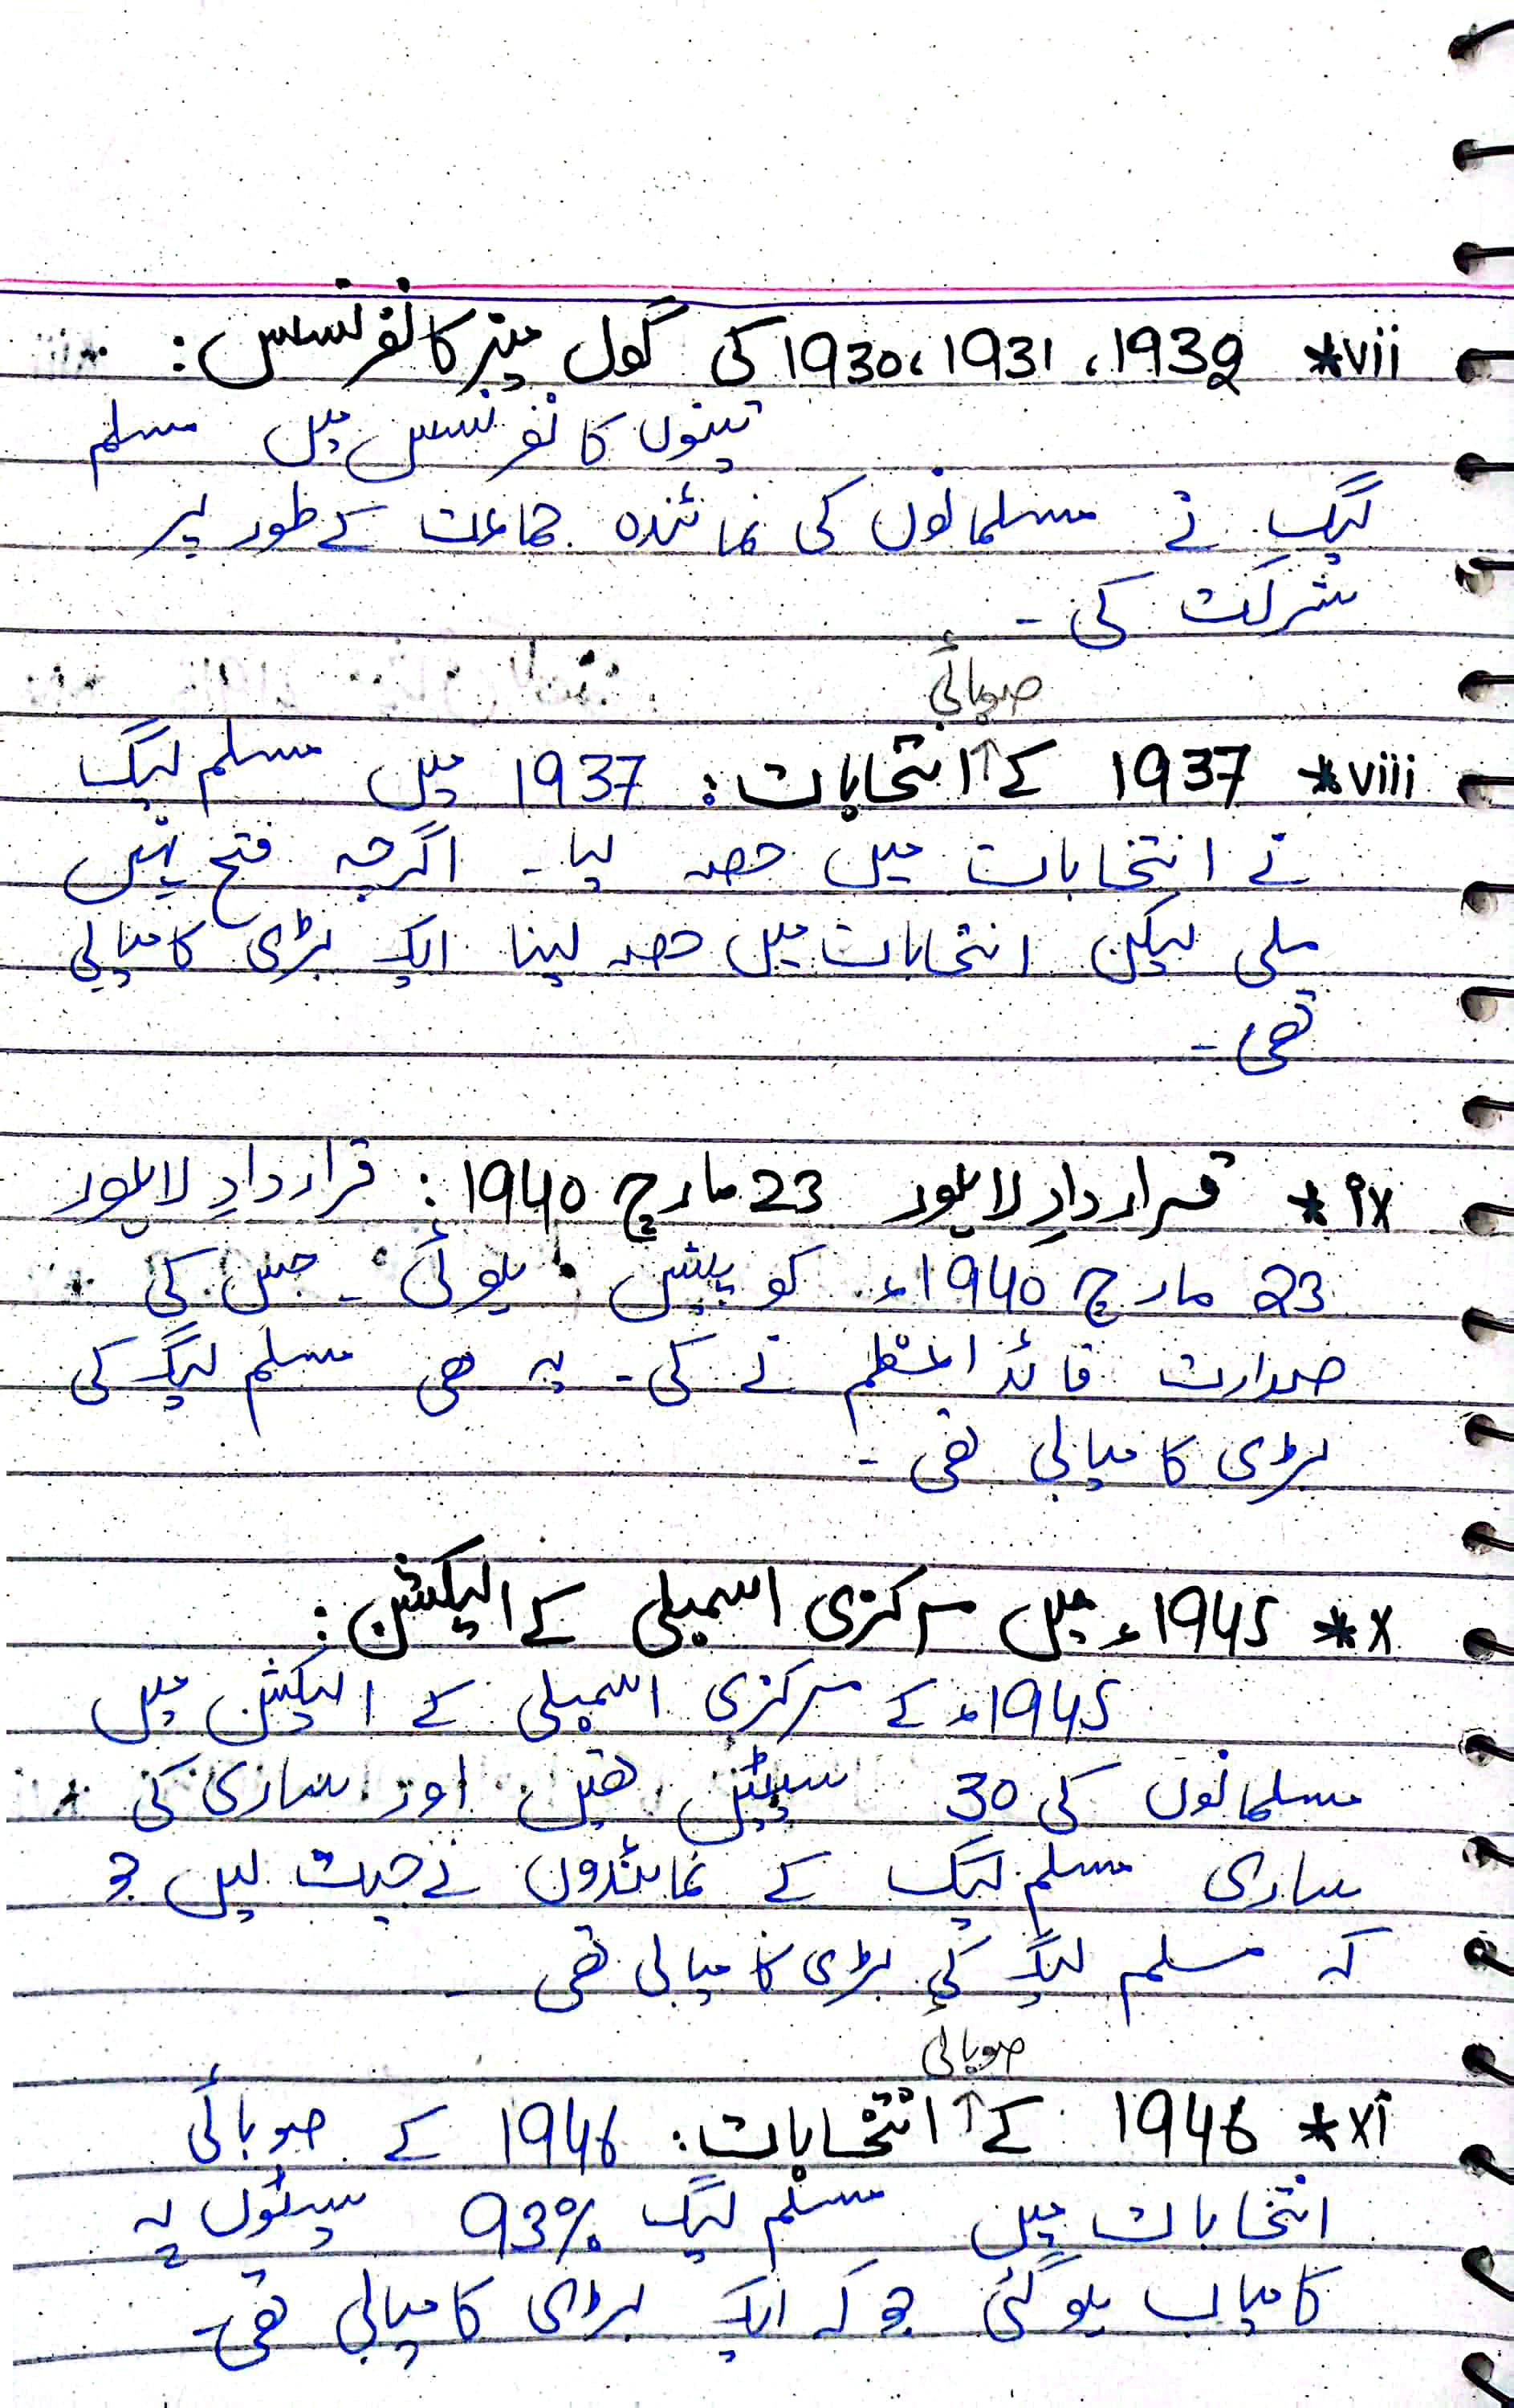 vii* 1930، 1931، 1932 کی گول میز کانفرنسس:
تینوں کانفرنسس میں مسلم
لیگ نے مسلمانوں کی نمائندہ جماعت کے طور پر
شرکت کی۔
صوبائی
viii* 1937 کے↑انتخابات: 1937 میں مسلم لیگ
نے انتخابات میں حصہ لیا۔ اگرچہ فتح نہیں
ملی لیکن انتخابات میں حصہ لینا ایک بڑی کامیابی
تھی۔
ix* قراردادِ لاہور 23 مارچ 1940: قراردادِ لاہور
23 مارچ 1940ء کو پیش ہوئی۔ جس کی
صدارت قائد اعظم نے کی۔ یہ بھی مسلم لیگ کی
بڑی کامیابی تھی۔
x* 1945ء میں مرکزی اسمبلی کے الیکشن:
1945ء کے مرکزی اسمبلی کے الیکشن میں
مسلمانوں کی 30 سیٹیں تھیں اور ساری کی
ساری مسلم لیگ کے نمائندوں نے جیت لیں جو
کہ مسلم لیگ کی بڑی کامیابی تھی۔
صوبائی
xi* 1946 کے↑انتخابات: 1946 کے صوبائی
انتخابات میں مسلم لیگ 93% سیٹوں پہ
کامیاب ہوگئی جو کہ ایک بڑی کامیابی تھی۔